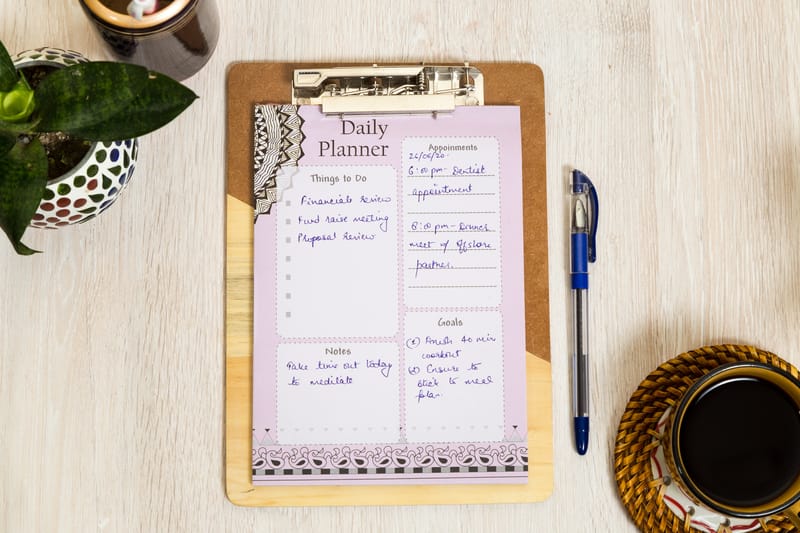 Daily
Planner
Things to Do
Financials review
Fund raise meeting
Proposal review
Appoinments
26/06/20.
6:00 pm - Dentist
appointment
8:00 pm - Dinner
meet w/ offshore
partner.
Notes
Take time out today
to meditate
Goals
Finish 40 min
workout
Ensure to
stick to meal
plan.